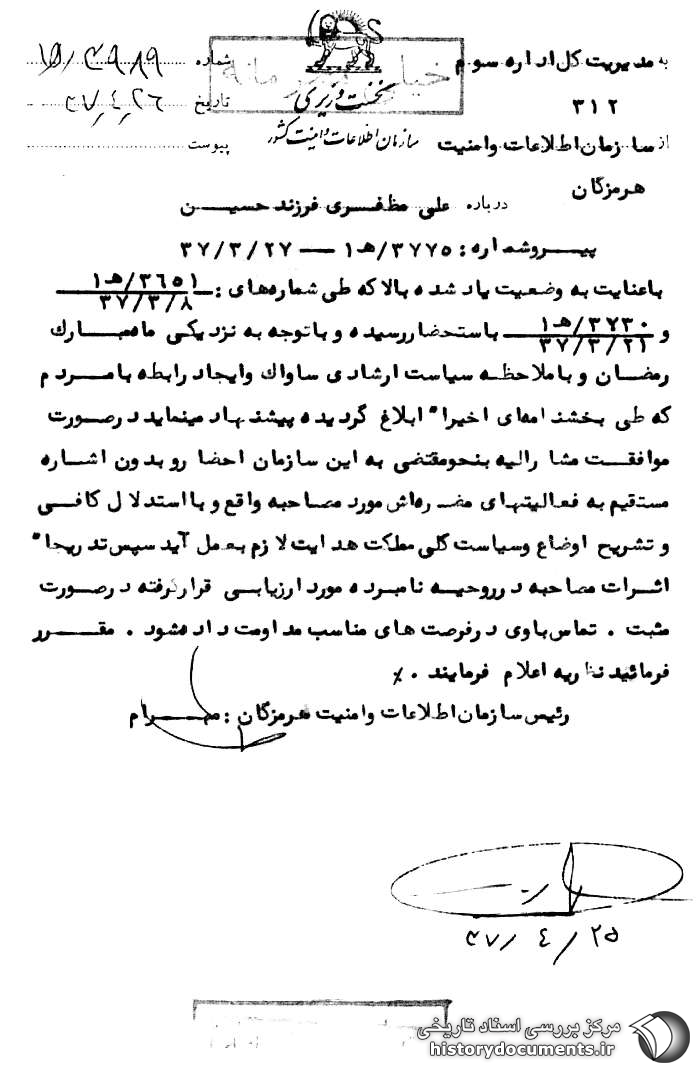 به مدیریت کل اداره سوم
۳۱۲
از سازمان اطلاعات و امنیت
هرمزگان
نخست وزیری
سازمان اطلاعات و امنیت کشور
خیلی محرمانه
شماره ۱۵/۳۹۸۹
تاریخ ۳۷/۴/۲۶
پیوست
درباره علی مظفری فرزند حسین
پیرو شماره: ۳۷۷۵/هـ۱ — ۳۷/۳/۲۷
باعنایت به وضعیت یاد شده بالا که طی شماره‌های: ۳۶۵۱/هـ۱ ۳۷/۳/۸
و ۳۷۳۰/هـ۱ ۳۷/۳/۲۱ باستحضار رسیده و باتوجه به نزدیکی ماه مبارک
رمضان و با ملاحظه سیاست ارشادی ساواک وایجاد رابطه با مردم
که طی بخشنامه‌های اخیرا" ابلاغ گردیده پیشنهاد مینماید درصورت
موافقت مشارالیه بنحو مقتضی به این سازمان احضار و بدون اشاره
مستقیم به فعالیتهای مضره‌اش مورد مصاحبه واقع و با استدلال کافی
و تشریح اوضاع وسیاست کلی مملکت هدایت لازم بعمل آید سپس تدریجا"
اثرات مصاحبه در روحیه نامبرده مورد ارزیابی قرار گرفته درصورت
مثبت. تماس باوی درفرصت های مناسب مداومت داده شود. مقرر
فرمائید نظریه اعلام فرمایند. ٪
رئیس سازمان اطلاعات وامنیت هرمزگان: مهرام
۳۷/۴/۲۵
مرکز بررسی اسناد تاریخی
historydocuments.ir